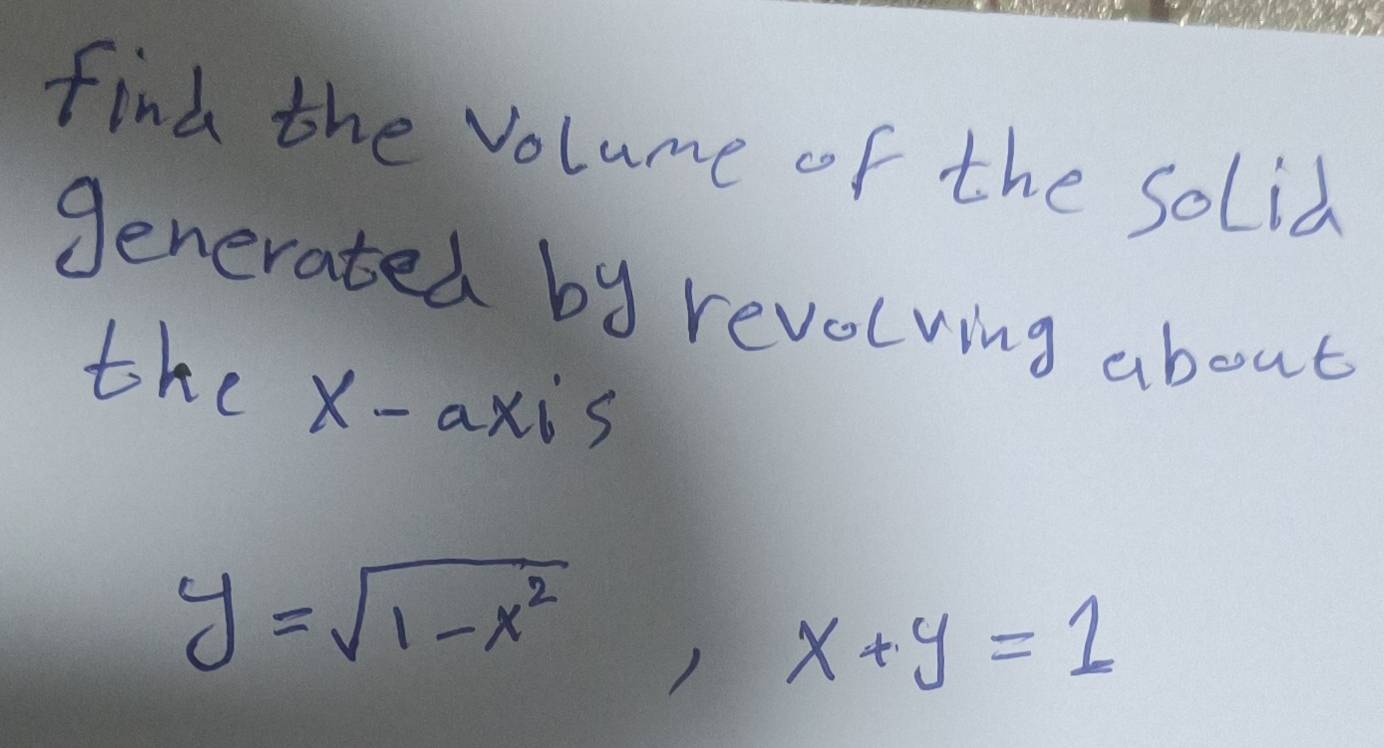 find the volume of the solid
generated by revolving about
the x-axis
y = √(1-x²) , x + y = 1